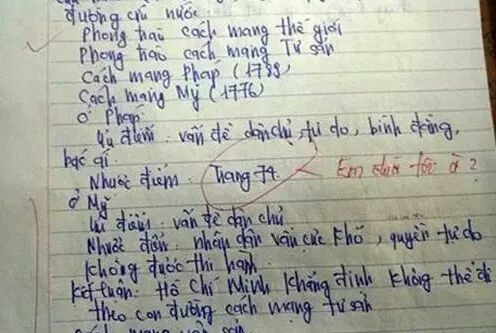 đường cứu nước.
Phong trào cách mạng thế giới
Phong trào cách mạng Tư sản
Cách mạng Pháp (1789)
Cách mạng Mỹ (1776)
Ở Pháp
Ưu điểm: vấn đề dân chủ, tự do, bình đẳng,
bác ái.
Nhược điểm: Trang 74.
Em đùa tôi à?
Ở Mỹ
Ưu điểm: vấn đề dân chủ
Nhược điểm: nhân dân vẫn cực khổ, quyền tự do
không được thi hành.
Kết luận: Hồ Chí Minh khẳng định không thể đi
theo con đường cách mạng tư sản